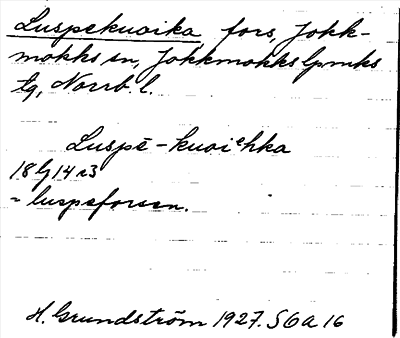 Luspekuoika fors, Jokk-
mokks sn, Jokkmokks lpmks
tg, Norrb. l.
Luspē-kuoiᵉhka
18 14 23
= luspeforsen.
H. Grundström 1927. SOA 16